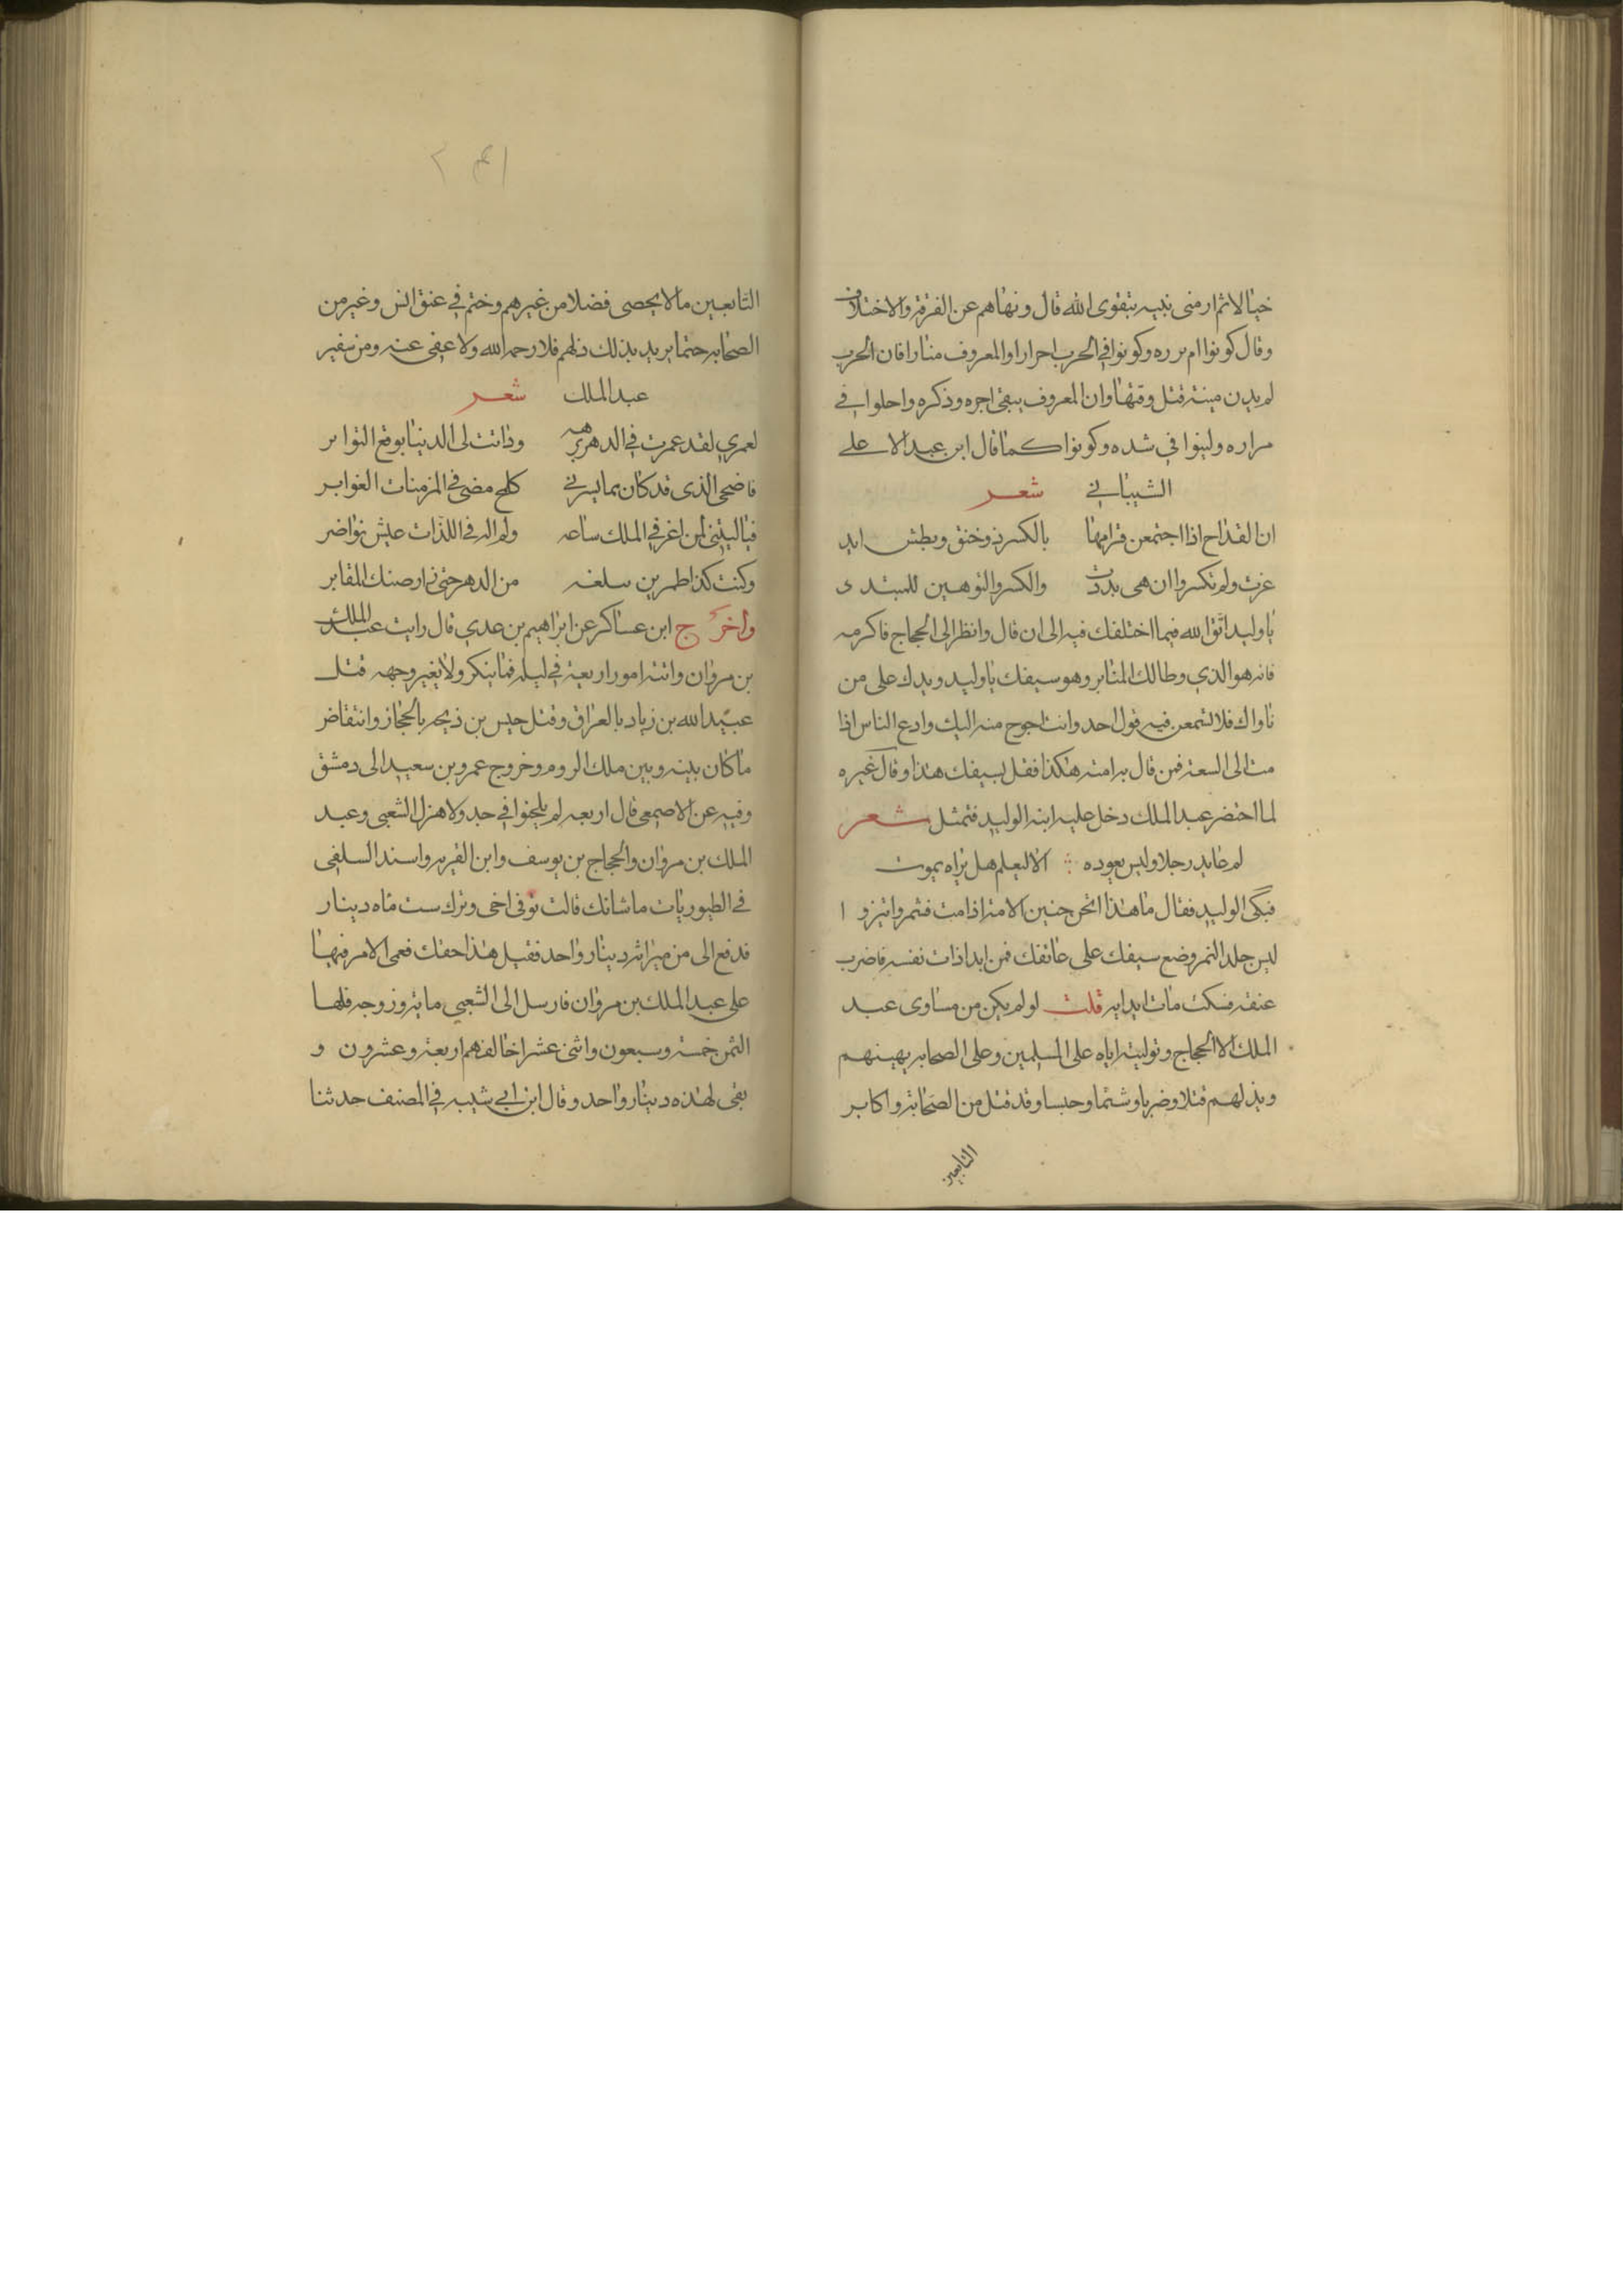 خيالا ثم ارمنى نبيه بتقوى الله قال ونهاهم عن الفرقة والاختلاف
وقال كونوا ام برره وكونوا فى الحرب احرارا والمعروف منارا فان الحرب
لم يدن مينته قتل وقتها وان المعروف يبقى اجره وذكره واحلوا في
مراره ولينوا في شده وكونوا كما قال ابن عبد الاعلى
الشيباني شعر
ان القداح اذا اجتمعن فرامها بالكسر ذو خنق وبطش ايد
عزت ولم تكسروا ان هى بددت والكسر والتوهين للمبتدى
يا وليد اتق الله فيما اختلفك فيه الى ان قال وانظر الى الحجاج فاكرمه
فانه هو الذي وطالك المنابر وهو سيفك يا وليد ويدك على من
ناواك فلا تسمعن فيه قول احد وانت احوج منه اليك وادع الناس اذا
مت الى السعة فمن قال برامته هكذا فقل بسيفك هذا وقال غيره
لما احتضر عبد الملك دخل عليه ابنه الوليد فتمثل شعر
لم عايد رجلا وليس يعوده الا ليعلم هل يراه يموت
فبكى الوليد فقال ما هذا اتحن حنين الامة اذا مت فثمر واتيزر و ا
لبس جلد النمر وضع سيفك على عاتقك فمن ابدا ذات نفسه فاضرب
عنقه فسكت مات ايدايه قلت لو لم يكن من مساوى عبد
الملك الا الحجاج وتوليته اياه على المسلمين وعلى الصحابه يهينهم
ويذلهم قتلا وضربا وشتما وحبسا وقد قتل من الصحابة واكابر
التابعين
٢٤١
التابعين ما لا يحصى فضلا من غيرهم وختم في عنق انس وغير من
الصحابه حتما يريد بذلك ذلهم فلا رحمه الله ولا عفى عنه ومن شعر
عبد الملك شعر
لعمري لقد عمرت في الدهر برهه ودانت لى الدنيا بوقع التواتر
فاضحى الذى قد كان مما يسرني كلمح مضى فى المزمنات الغوابر
فياليتنى لم اغر في الملك ساعه ولم اله فى اللذات عيش نواضر
وكنت كذا طمرين سلغه من الدهر حتى زار صنك المقابر
واخرج ابن عساكر عن ابراهيم بن عدي قال رايت عبد الملك
بن مروان واتته امور اربعة في ليله فما ينكر ولا يغير وجهه قتل
عبيد الله بن زياد بالعراق وقتل حبس بن ذيحه بالحجاز وانتقاض
ما كان بينه وبين ملك الروم وخروج عمرو بن سعيد الى دمشق
وفيه عن الاصمعى قال اربعه لم يلحنوا في جد ولا هزل الشعبى وعبد
الملك بن مروان والحجاج بن يوسف وابن القريه واسند السلفى
في الطيوريات ما شانك قالت توفى اخى وترك ست ماه دينار
فدفع الى من ميراثه دينار واحد فقيل هذا حقك فعمى الامر فيها
على عبد الملك بن مروان فارسل الى الشعبي ما يترو زوجه فلها
الثمن خمسة وسبعون واثنى عشر اخا لفهم اربعة وعشرون و
بقى لهذه دينار واحد وقال ابن ابي شيبه في المصنف حدثنا